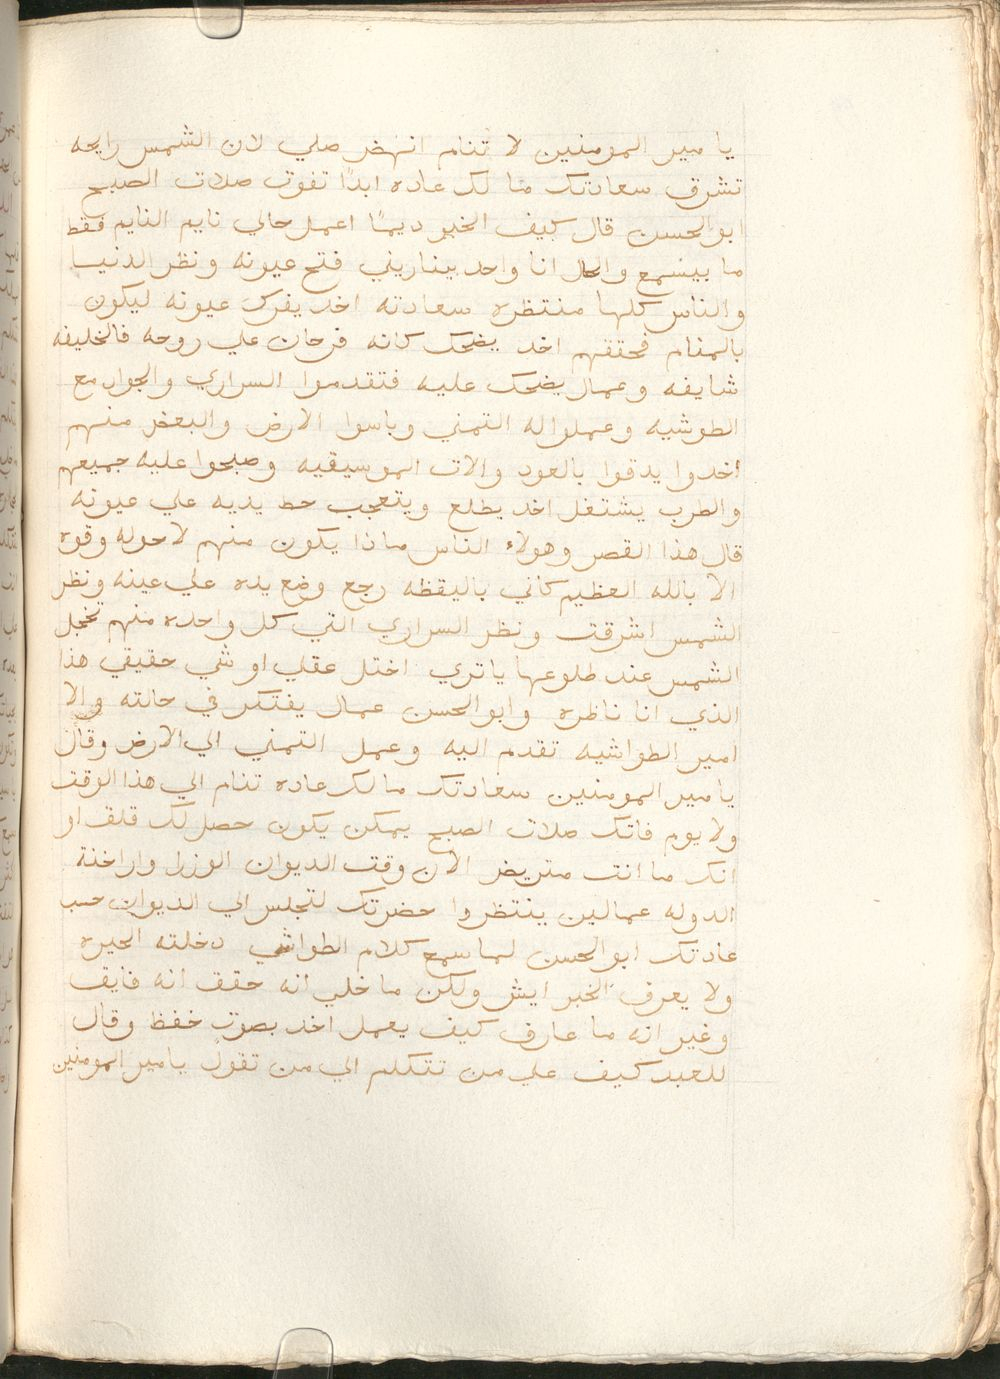 يا مير المومنين لا تنام انهض صلي لان الشمس رايحه
تشرق سعادتك ما لك عاده ابدًا تفوت صلات الصبح
ابو الحسن قال كيف الخبر ديمًا اعمل حالي نايم النايم فقط
ما بيسمع والحال انا واحد بيناريني فتح عيونه ونظر الدنيا
والناس كلها منتظره سعادته اخد يفرك عيونه ليكون
بالمنام فحققهم اخد يضحك كانه فرحان علي روحه فالخليفه
شايفه وعمال يضحك عليه فتقدموا السراري والجوار مع
الطوشيه وعملوا له التمني وباسوا الارض والبعض منهم
اخدوا يدقوا بالعود والات الموسيقيه وصبحوا عليه جميعهم
والطرب يشتغل اخد يطلع ويتعجب حط يديه علي عيونه
قال هذا القصر وهولاء الناس ماذا يكون منهم لا حوله وقوه
الا بالله العظيم كاني باليقظه رجع وضع يده علي عينه ونظر
الشمس اشرقت ونظر السراري التي كل واحده منهم تخجل
الشمس عند طلوعها يا تري اختل عقلي او شي حقيقي هذا
الذي انا ناظره وابو الحسن عمال يفتكر في حالته والا
امير الطواشيه تقدم اليه وعمل التمني الي الارض وقال
يا مير المومنين سعادتك ما لك عاده تنام الي هذا الوقت
ولا يوم فاتك صلات الصبح يمكن يكون حصل لك قلق او
انك ما انت متريض الان وقت الديوان الوزرا واراخنة
الدوله عمالين ينتظروا حضرتك لتجلس الي الديوان حسب
عادتك ابو الحسن لما سمع كلام الطواشي دخلته الحيره
ولا يعرف الخبر ايش ولكن ما خلي انه حقق انه فايق
وغير انه ما عارف كيف يعمل اخد بصوت خفظ وقال
للعبد كيف علي من تتكلم الي من تقول يا مير المومنين